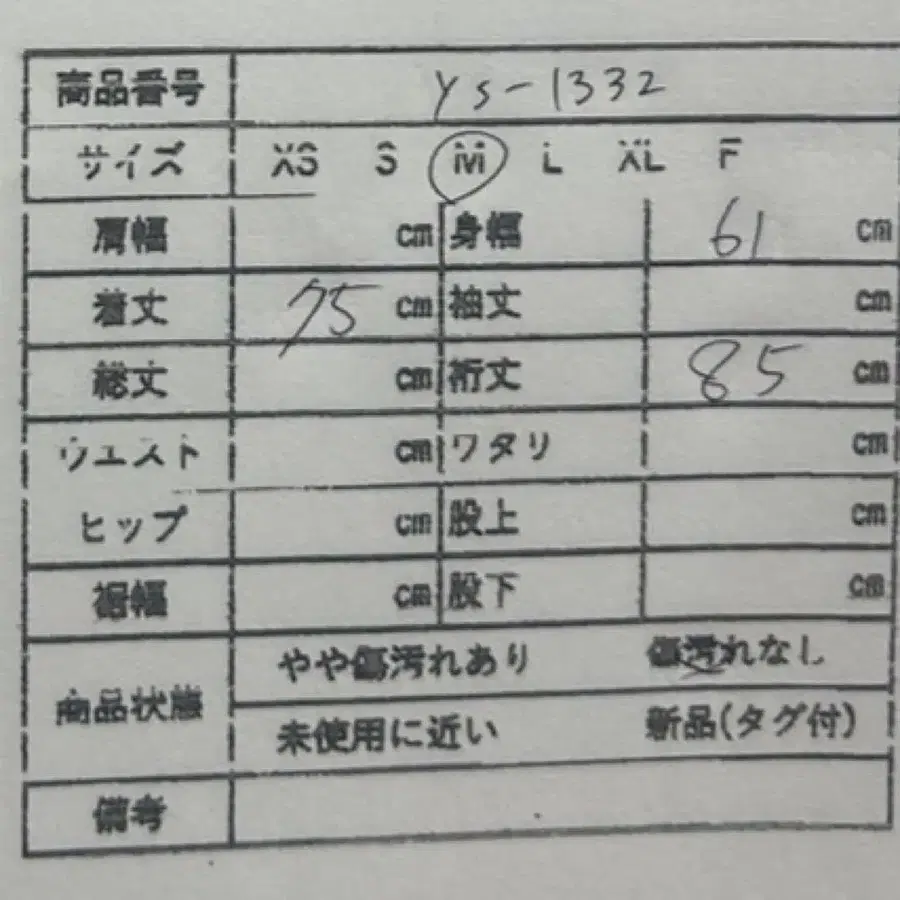 商品番号 ys-1332
サイズ XS S M L XL F
肩幅 cm 身幅 61 cm
着丈 75 cm 袖丈 cm
総丈 cm 裄丈 85 cm
ウエスト cm ワタリ cm
ヒップ cm 股上 cm
裾幅 cm 股下 cm
商品状態 やや傷汚れあり 傷汚れなし
未使用に近い 新品(タグ付)
備考